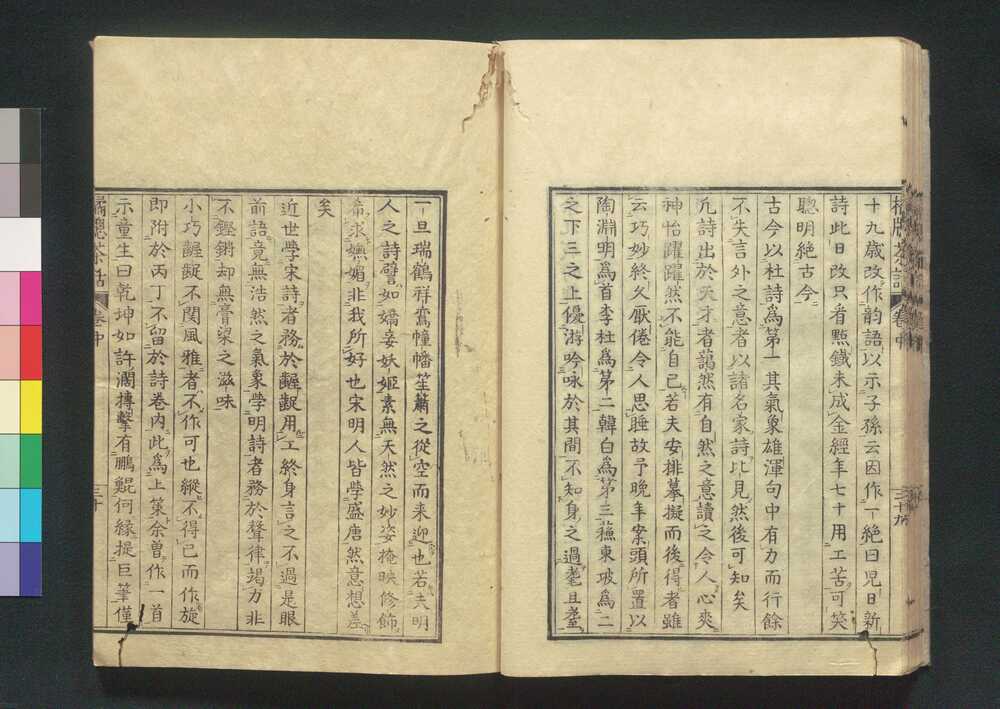 十九歲改作韵語以示子孫云因作一絶曰児日新
詩此日改只有點鐵未成金經年七十用工苦可笑
聰明絶古今
古今以杜詩爲第一其氣象雄渾句中有力而行餘
不失言外之意者以諸名家詩比見然後可知矣
凡詩出於天才者藹然有自然之意讀之令人心爽
神怡躍躍然不能自已若夫安排摹擬而後得者雖
云巧妙終久厭倦令人思睡故予晚年案頭所置以
陶淵明爲首李杜爲第二韓白爲第三蘓東坡爲二
之下三之上優游吟咏於其間不知身之過耄且耋
一旦瑞鶴祥鸞幢幡笙簫之從空而来迎也若夫明
人之詩譬如嬌妾妖姬素無天然之妙姿掩映修飾
希求嫵媚非我所好也宋明人皆學盛唐然意想差
矣
近世學宋詩者務於齷齪用工終身言之不過是眼
前語竟無浩然之氣象學明詩者務於聲律竭力非
不鏗鏘却無膏梁之滋味
小巧齷齪不関風雅者不作可也縱不得已而作旋
即附於丙丁不留於詩卷内此爲上策余曽作一首
示童生曰乾坤如許濶摶擊有鵬鯤何緣提巨筆僅
茶話 卷中